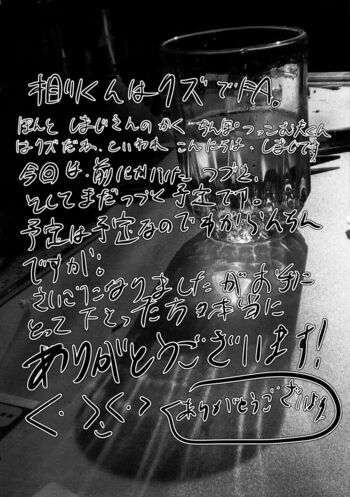 相川くんはクズでFA。
ほんと しまじさんのかく
はクズだね、といわれ こんにちは、しまじです
今回は、前にかいた つづきと、
そしてまだつづく予定です。
予定は予定なのでわからんちん
ですが。
さいごになりましたがお手に
とって下さった方々本当に
ありがとうございます!
ありがとうございます